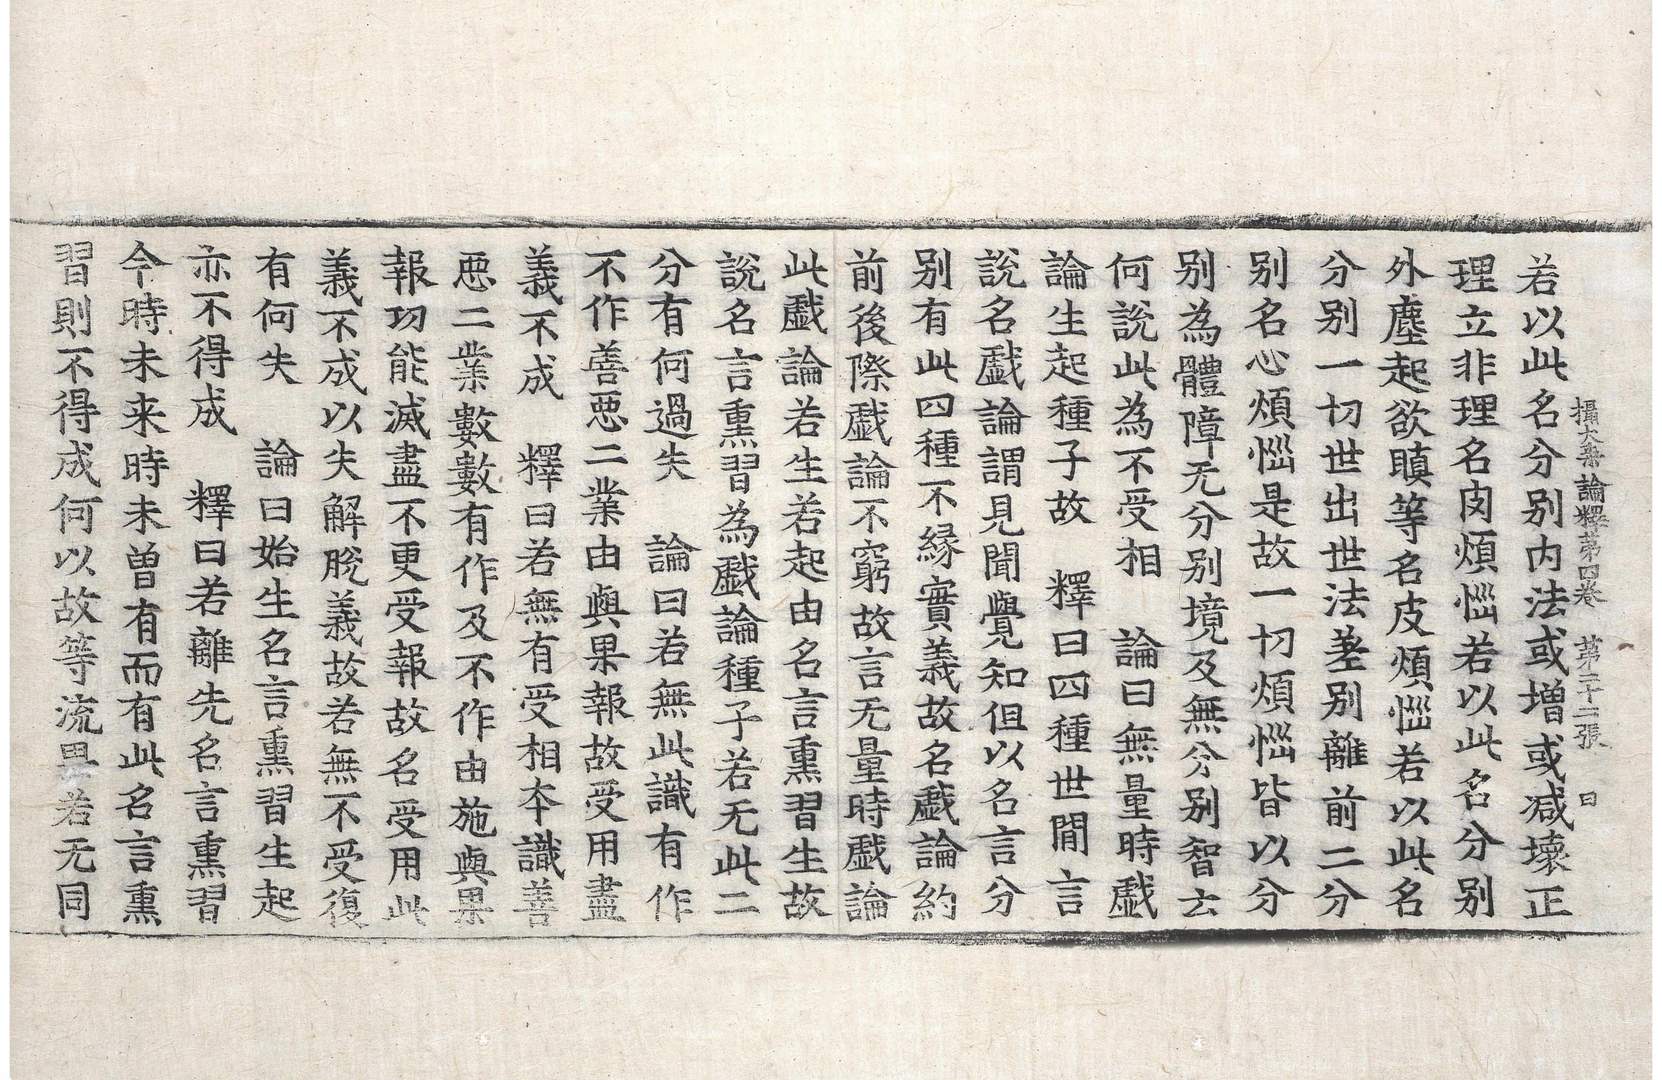 攝大乘論釋第四卷 第二十二張 曰
若以此名分别内法或增或减壞正
理立非理名肉煩惱若以此名分别
外塵起欲瞋等名皮煩惱若以此名
分别一切世出世法差别離前二分
别名心煩惱是故一切煩惱皆以分
别為體障无分别境及無分别智云
何說此為不受相 論曰無量時戲
論生起種子故 釋曰四種世間言
說名戲論謂見聞覺知但以名言分
别有此四種不緣實義故名戲論約
前後際戲論不窮故言无量時戲論
此戲論若生若起由名言熏習生故
說名言熏習為戲論種子若无此二
分有何過失 論曰若無此識有作
不作善惡二業由與果報故受用盡
義不成 釋曰若無有受相本識善
惡二業數數有作及不作由施與果
報功能滅盡不更受報故名受用此
義不成以失解脫義故若無不受復
有何失 論曰始生名言熏習生起
亦不得成 釋曰若離先名言熏習
今時未来時未曾有而有此名言熏
習則不得成何以故等流果若无同